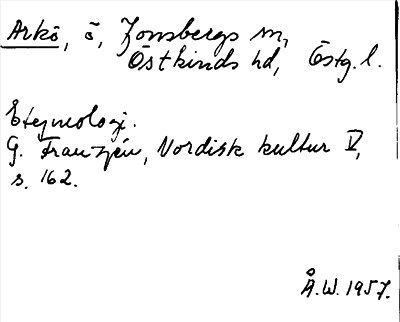 Arkö, ö, Jonsbergs sn,
Östkinds hd, Östg. l.
Etymologi.
G. Franzén, Nordisk kultur V,
s. 162.
Å.W. 1957.